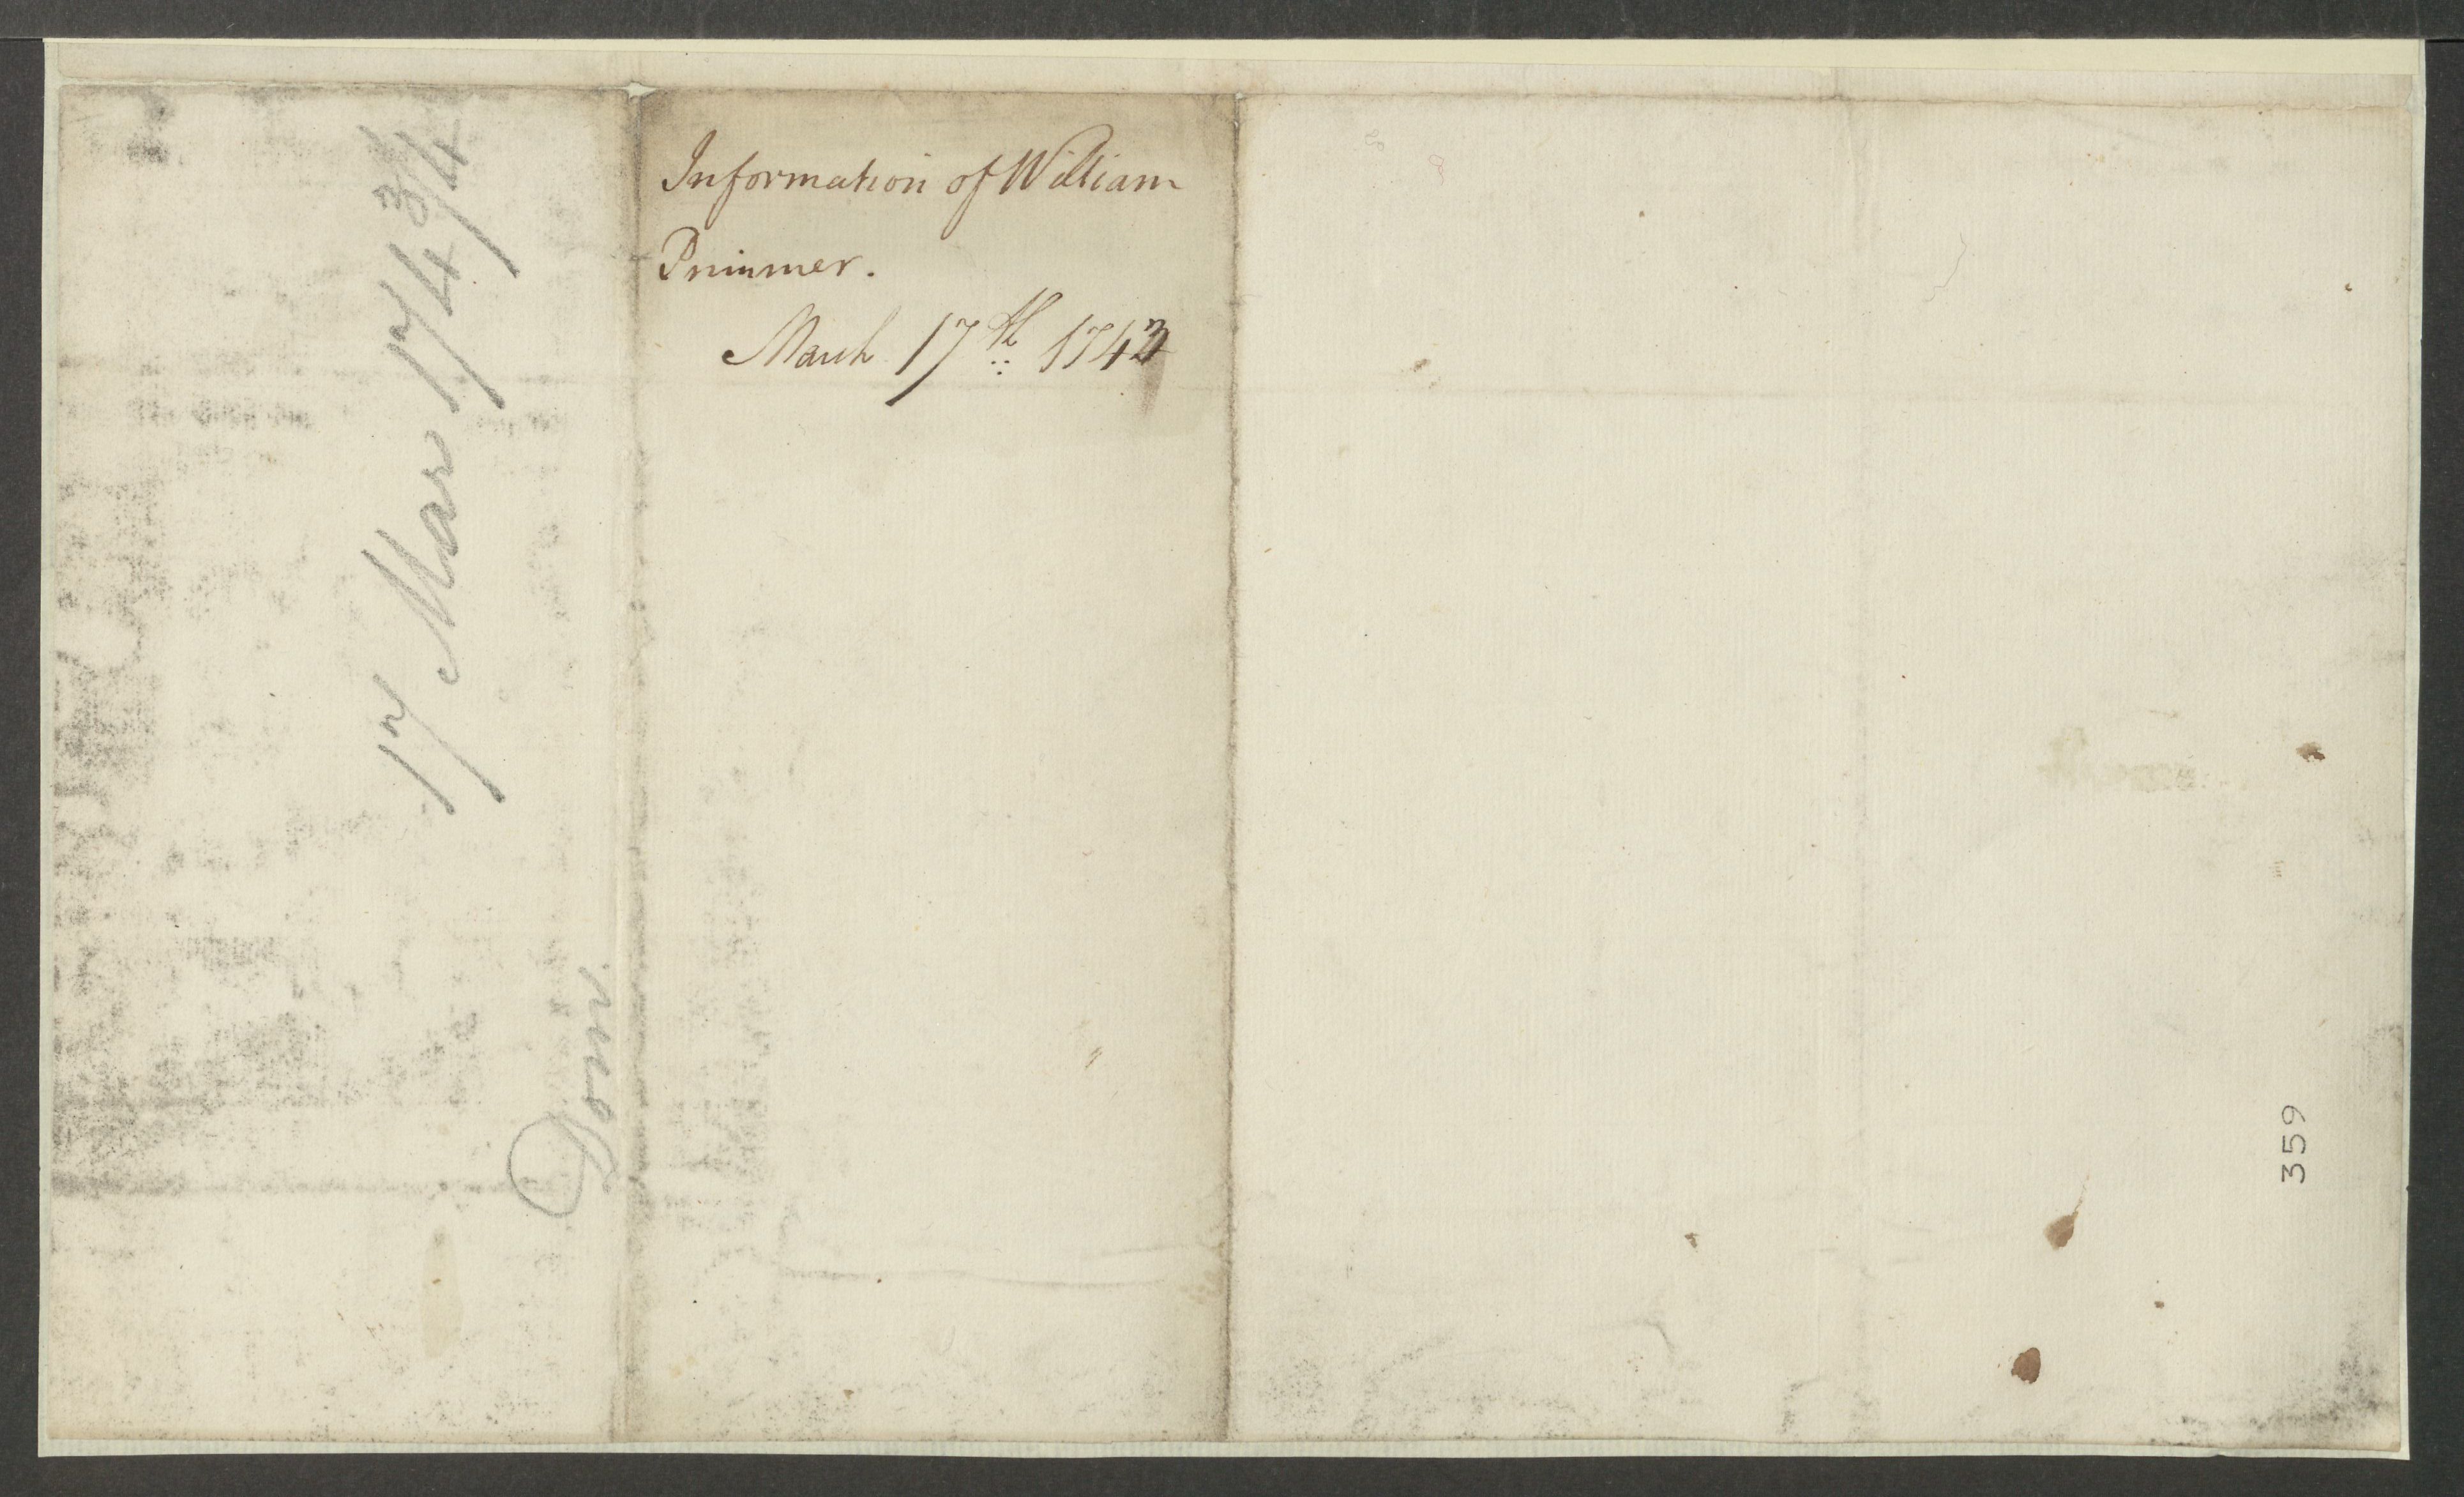 Information of William
Primmer.
March 17th 1743
17 Mar 1743/4
Dom.
359